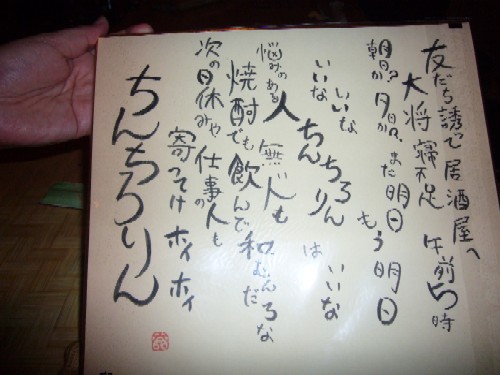 友だち誘で居酒屋へ
大将寝不足 午前5時
朝日か?夕日か?まだ明日 もう明日
いいな
いいな
ちんちろりん
は いいな
悩みのある人 無い人も
焼酎でも飲んで
次の日休みや仕事の人も
寄ってけホイホイ
ちんちろりん